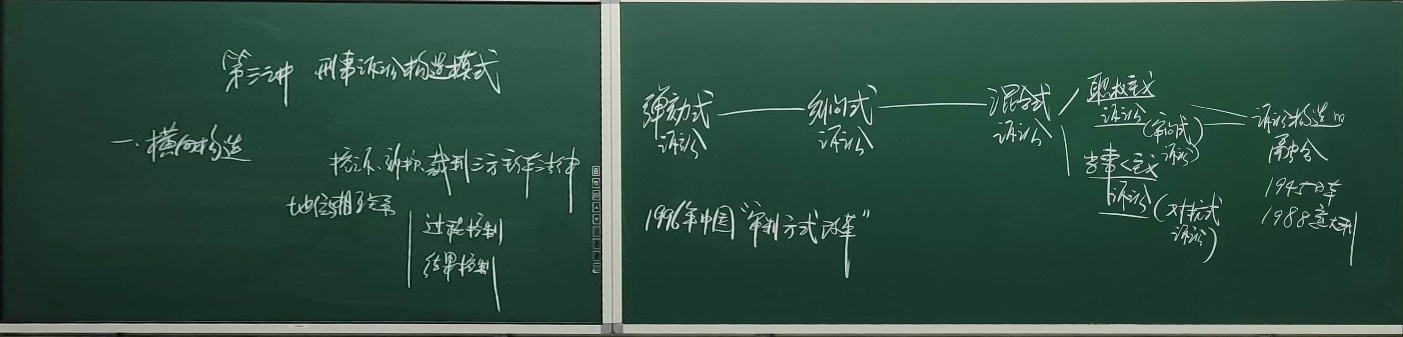 第三讲 刑事诉讼构造模式
一、横向构造
控诉、辩护、裁判三方
地位与相互关系
过程控制
结果控制
弹劾式
诉讼
纠问式
诉讼
混合式
诉讼
职权主义
诉讼(审问式
诉讼)
当事人主义
诉讼(对抗式
诉讼)
诉讼构造的
融合
1945日本
1988意大利
1996年中国“审判方式改革”